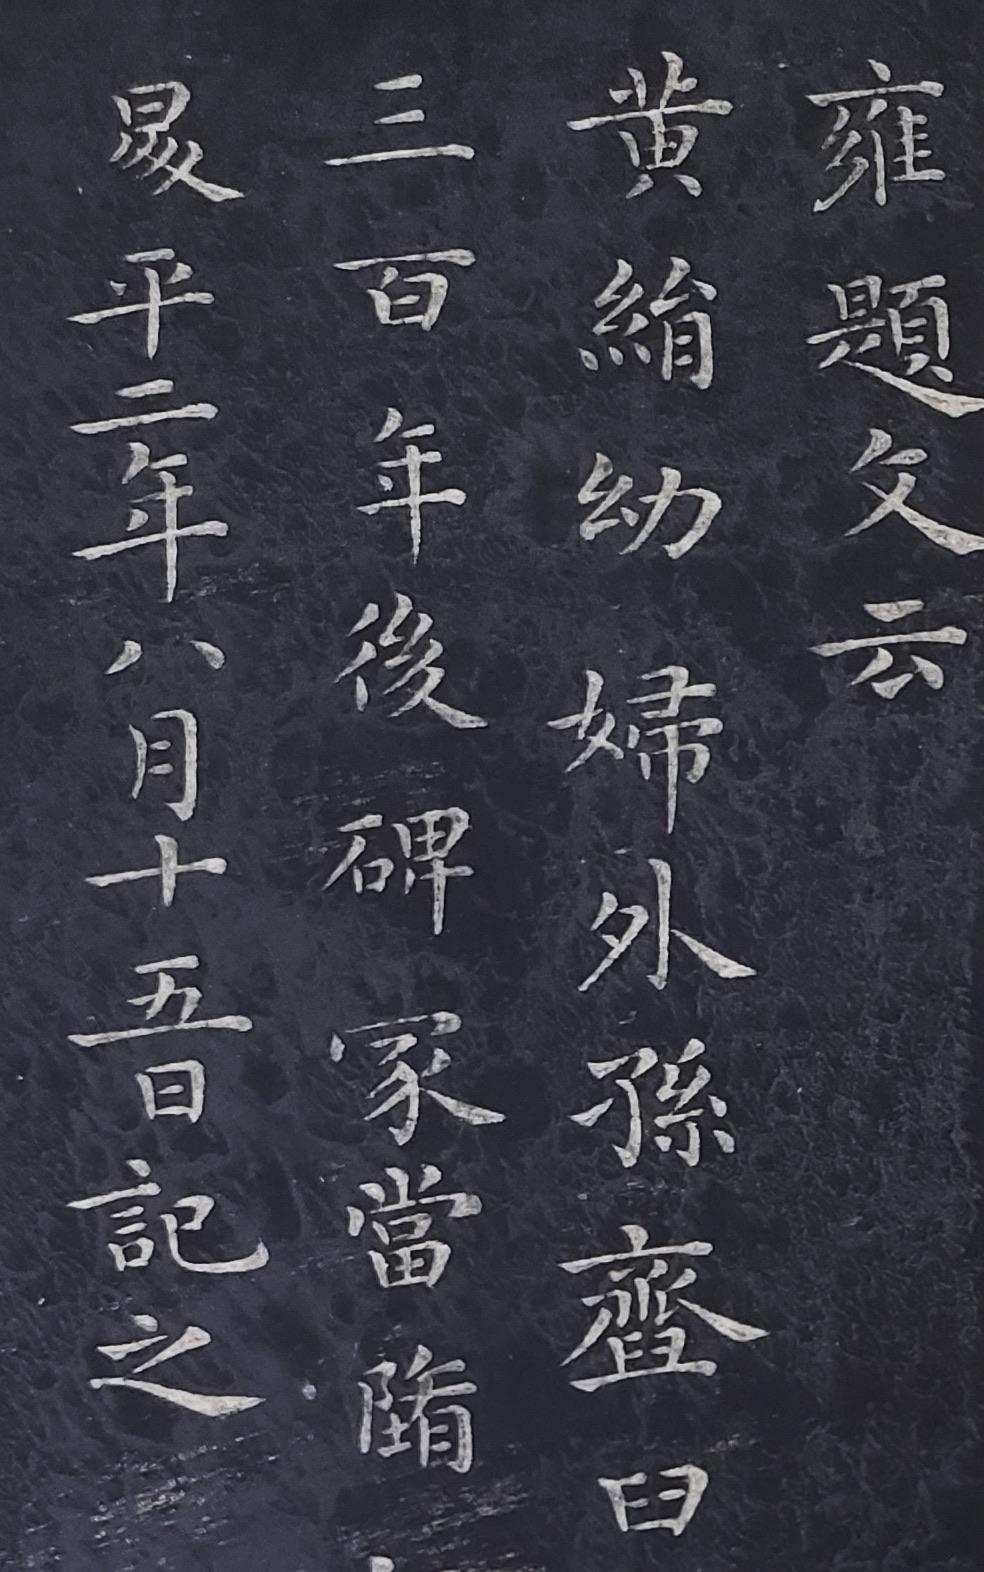 雍題文云
黃絹幼婦外孫齏臼
三百年後碑冢當墮
昇平二年八月十五日記之